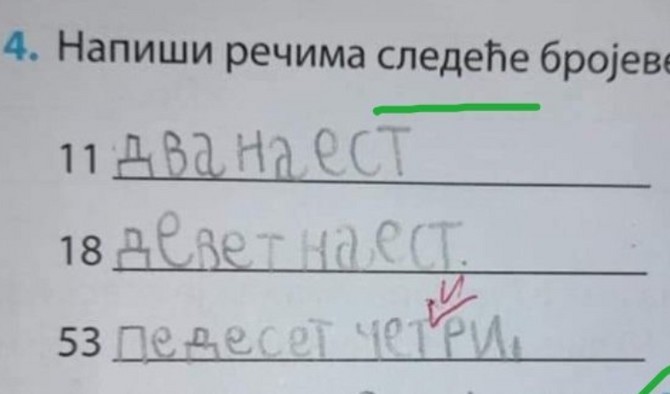 4. Напиши речима следеће бројеве
11 дванаест
18 деветнаест.
и
53 педесет четри.